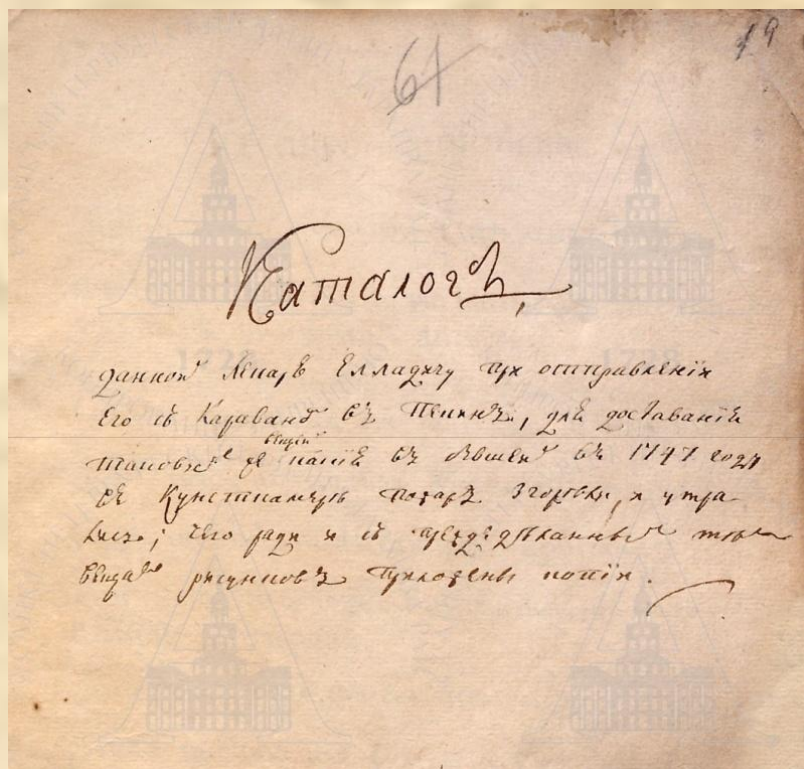 61
19
Каталогъ,
данной Лекарѣ Елладичу при отправленіи
Его съ Караваномъ въ Пекинъ, для доставанія
таковыхъ же вещей какіе въ бывшей въ 1747 году
въ Кунсткамерѣ пожаръ згорѣли, и утра-
тись; чего ради и съ прежде дѣланныхъ тѣмъ
вещамъ рисунковъ приложены копіи.